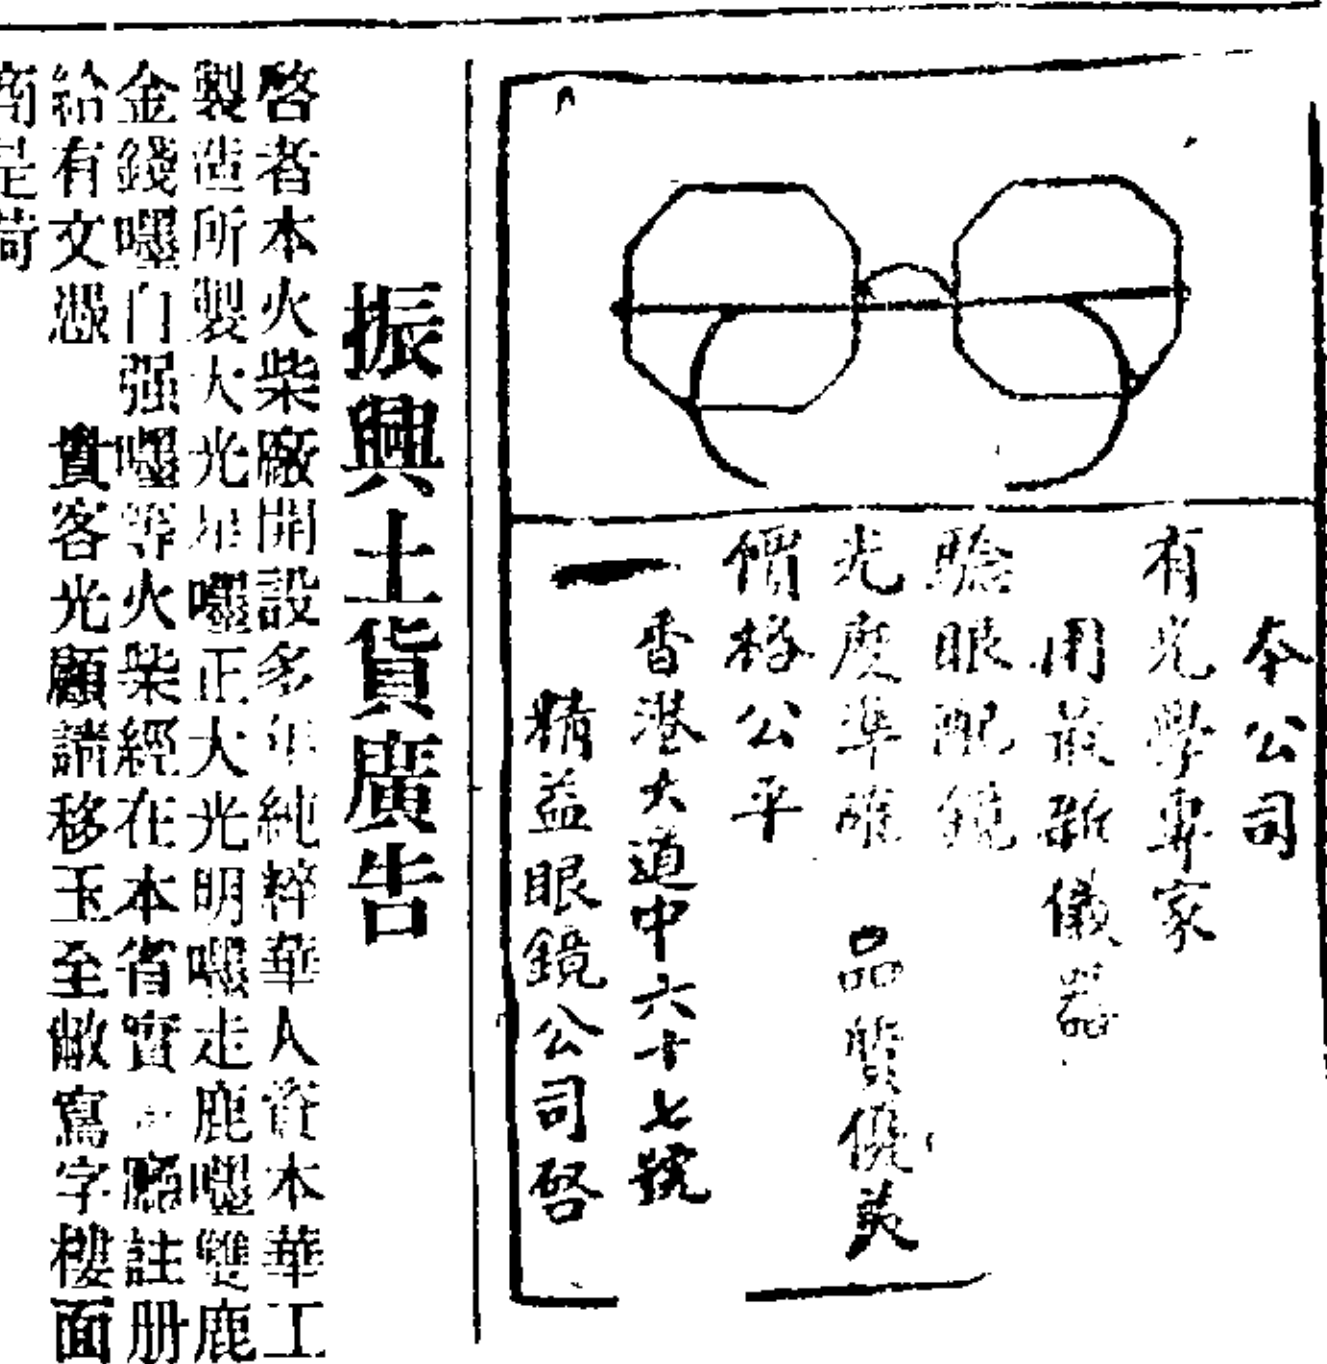 本公司
有光學專家
用最新儀器
驗眼配鏡
光度準確 品質優美
價格公平
香港大道中六十七號
精益眼鏡公司啓
振興土貨廣告
啓者本火柴廠開設多年純粹華人資本華工
製造所製大光星嘜正大光明嘜走鹿嘜雙鹿
金錢嘜自强嘜等火柴經在本省實 廳註册
給有文憑 貴客光顧請移玉至敝寫字樓面
商是荷